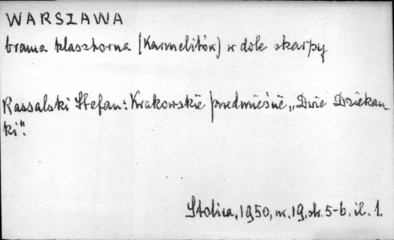 WARSZAWA
brama klasztorna (Karmelitów) w dole skarpy
Kassalski Stefan: Krakowskie przedmieście „Dwie Dziekan-
ki".
Stolica, 1950, nr. 19, str. 5-6, il. 1.